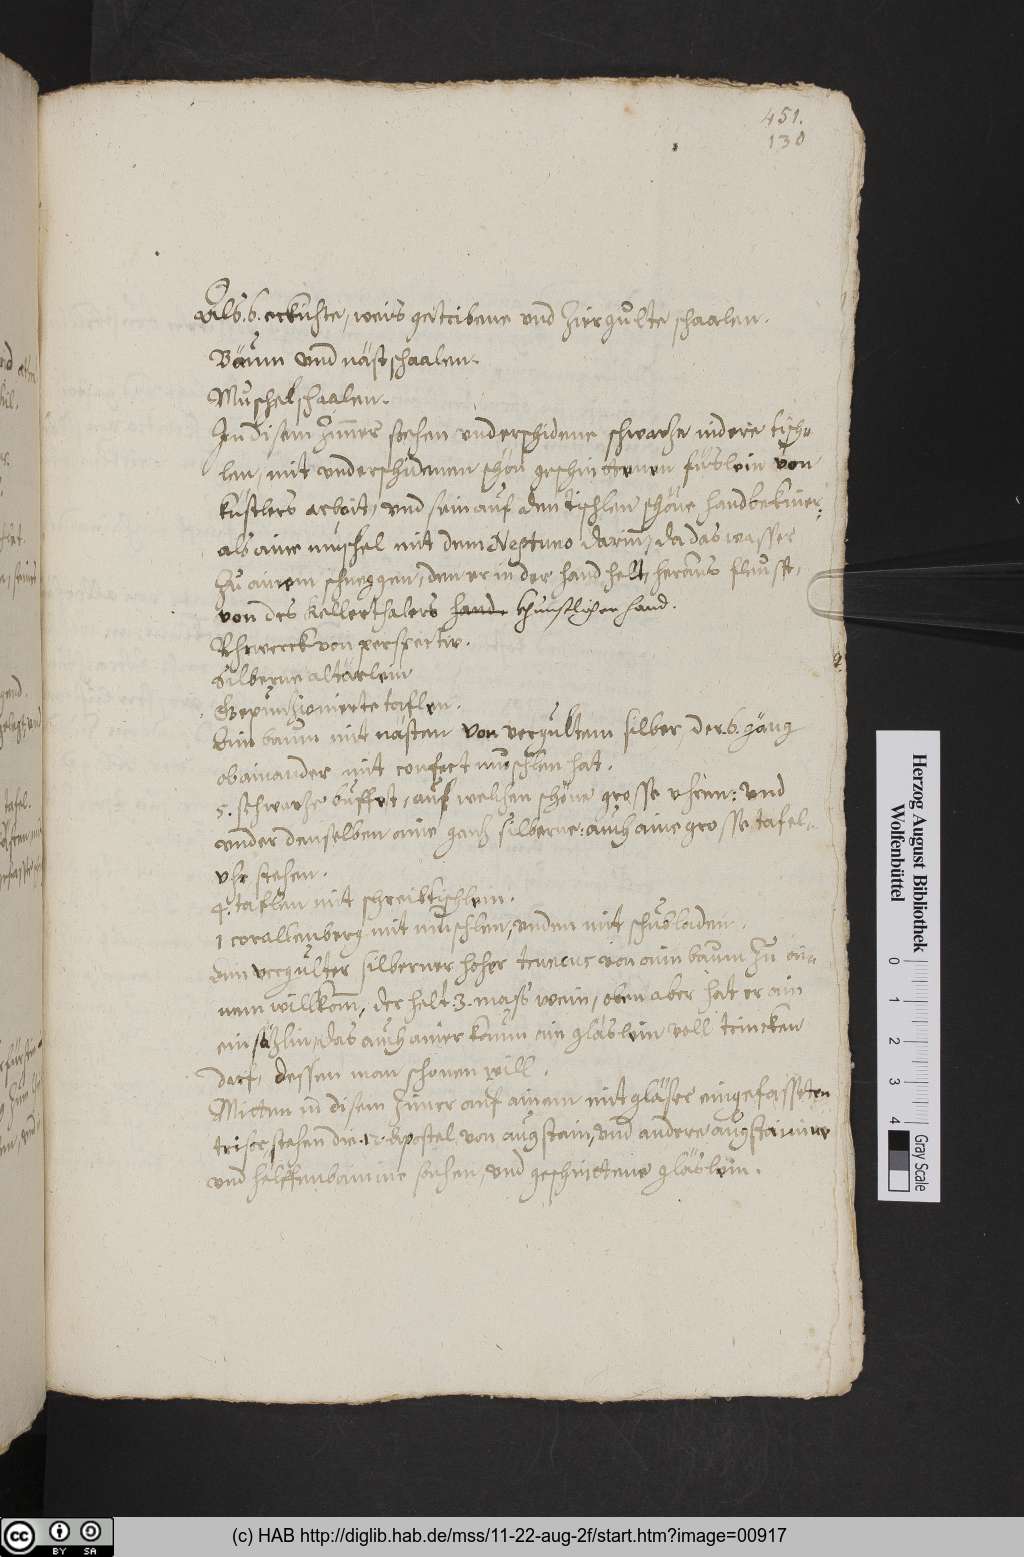 451.
130
Als. 6. eckichte, weis getribene und Zier gulte schaalen.
Bäum und nästschaalen.
Muschelschaalen.
In disem Zimer stehen underschidene schwarze nidere tisch-
len, mit underschidenen schön geschnittenen füslein von
kustlers arbeit, und sein auf den tischlen schöne handbekiner:
als aine muschel mit dem Neptuno darin, da das wasser
Zu ainem schneggen, den er in der hand helt, heraus fleusst,
von des Kellerthalers hande khunstlicher hand.
Uhrwerck von perspectiv.
Silberne altärlein
Gepunzionierte taflen.
Ein baum mit nästen von vergultem silber der. 6. gäng
ob ainander mit confect muschlen hat.
5. schwarze buffet, auf welchen schöne grosse uhren: und
under denselben aine ganz silberne: auch aine grosse tafel-
uhr stehen.
4. taflen mit schreibtischlein.
1 corallenberg mit muschlen, unden mit schubladen.
Ein vergulter silberner hoher truncus von aim baum Zu ei-
nem willkom, der helt 3. mass wein, oben aber hat er ain
einsäzlin, das auch ainer kaum ain gläslein voll trincken
darf, dessen man schonen will.
Mitten in disem Zimer auf ainem mit gläser eingefasseten
trisor stehen die. 12. Apostel von augstain, und andere augstainine
und helffenbainine sachen, und geschnittene gläslein.
Herzog August Bibliothek
Wolfenbüttel
0 1 2 3 4
Gray Scale
cc BY SA
(c) HAB http://diglib.hab.de/mss/11-22-aug-2f/start.htm?image=00917